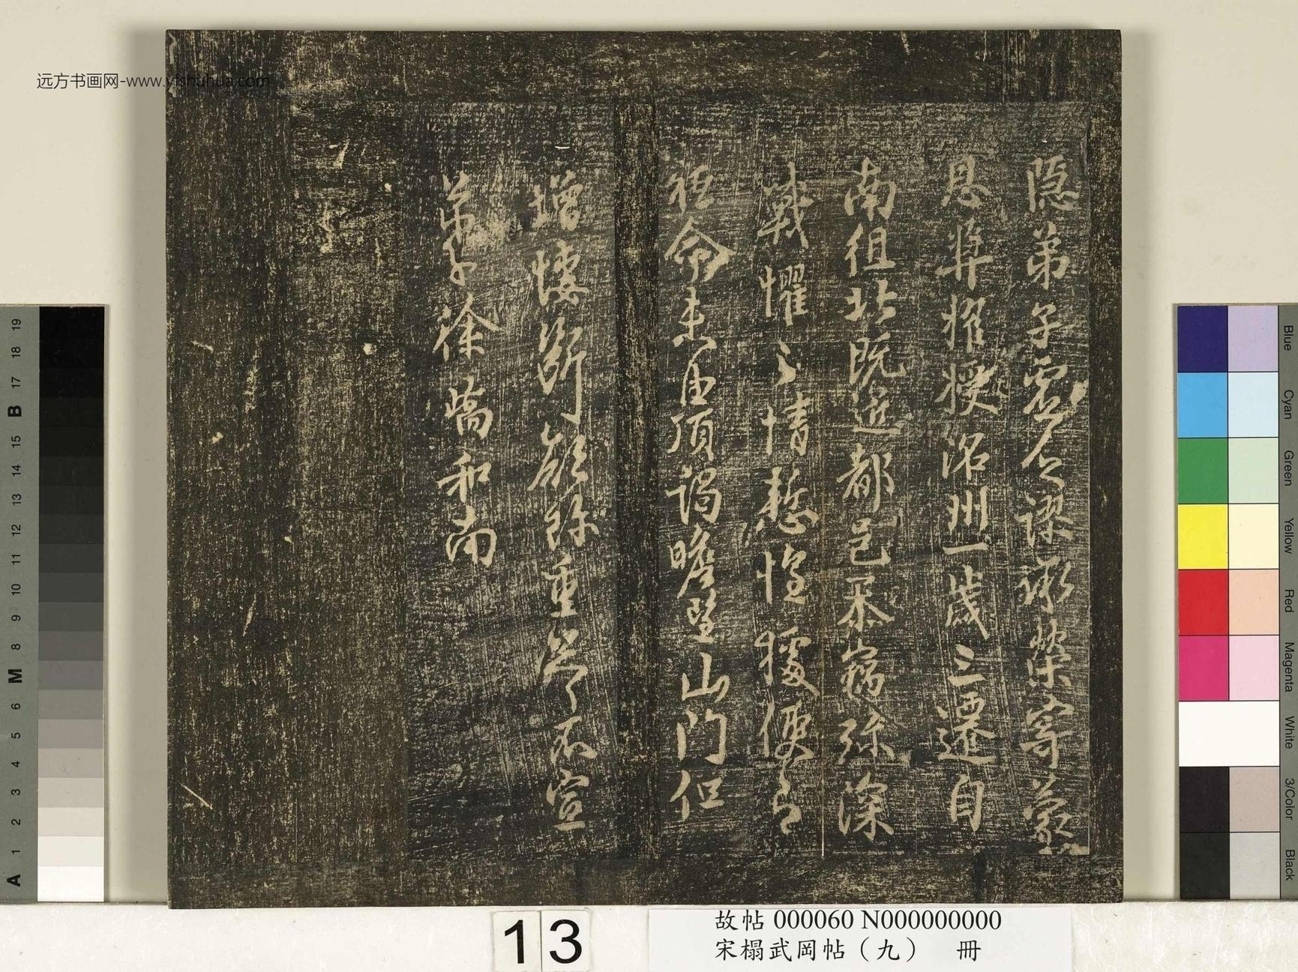 隱弟子虛乏謬承榮寄蒙
恩奬擢授洺州一歲三遷自
南徂北既近都邑忝竊弥深
戰懼之情慙惶穫便
祗命未由頂謁瞻望山門但
增悽斷願珍重不宣
弟子徐嶠和南
远方书画网-www.yfshuhua.com
13
故帖 000060 N000000000
宋榻武岡帖（九） 冊
19
18
17
B
15
14
13
12
11
10
9
8
M
6
5
4
3
2
1
A
Blue
Cyan
Green
Yellow
Red
Magenta
White
3/Color
Black